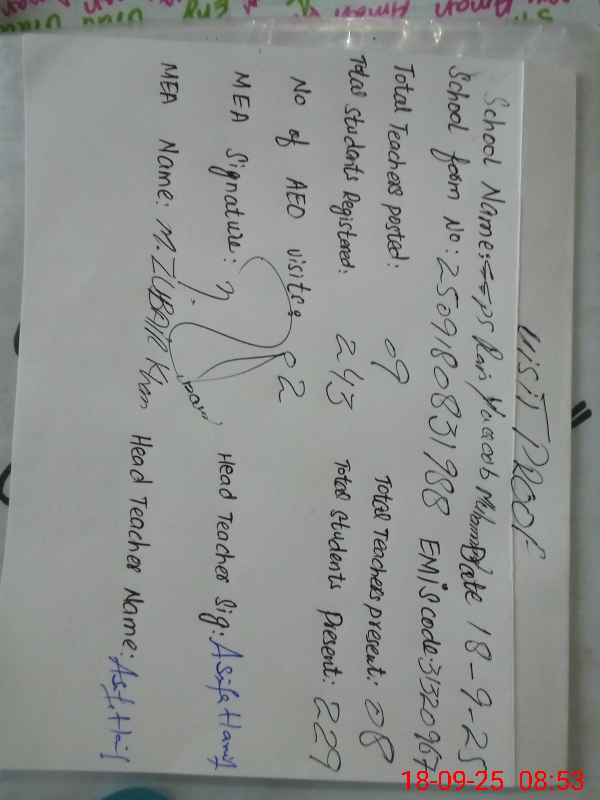 VISIT PROOF
School Name: GPS Rari Yaqoob Muhammad Date 18-9-25
School form No: 250918083 1988 EMIS code: 31320967
Total Teachers posted: 09 Total Teachers present: 08
Total students Registered: 243 Total students Present: 229
No of AEO visits: 02
MEA Signature: Head Teacher Sig: Asifa Hanif
MEA Name: M. ZUBAIR Khan Head Teacher Name: Asifa Hanif
18-09-25 08:53